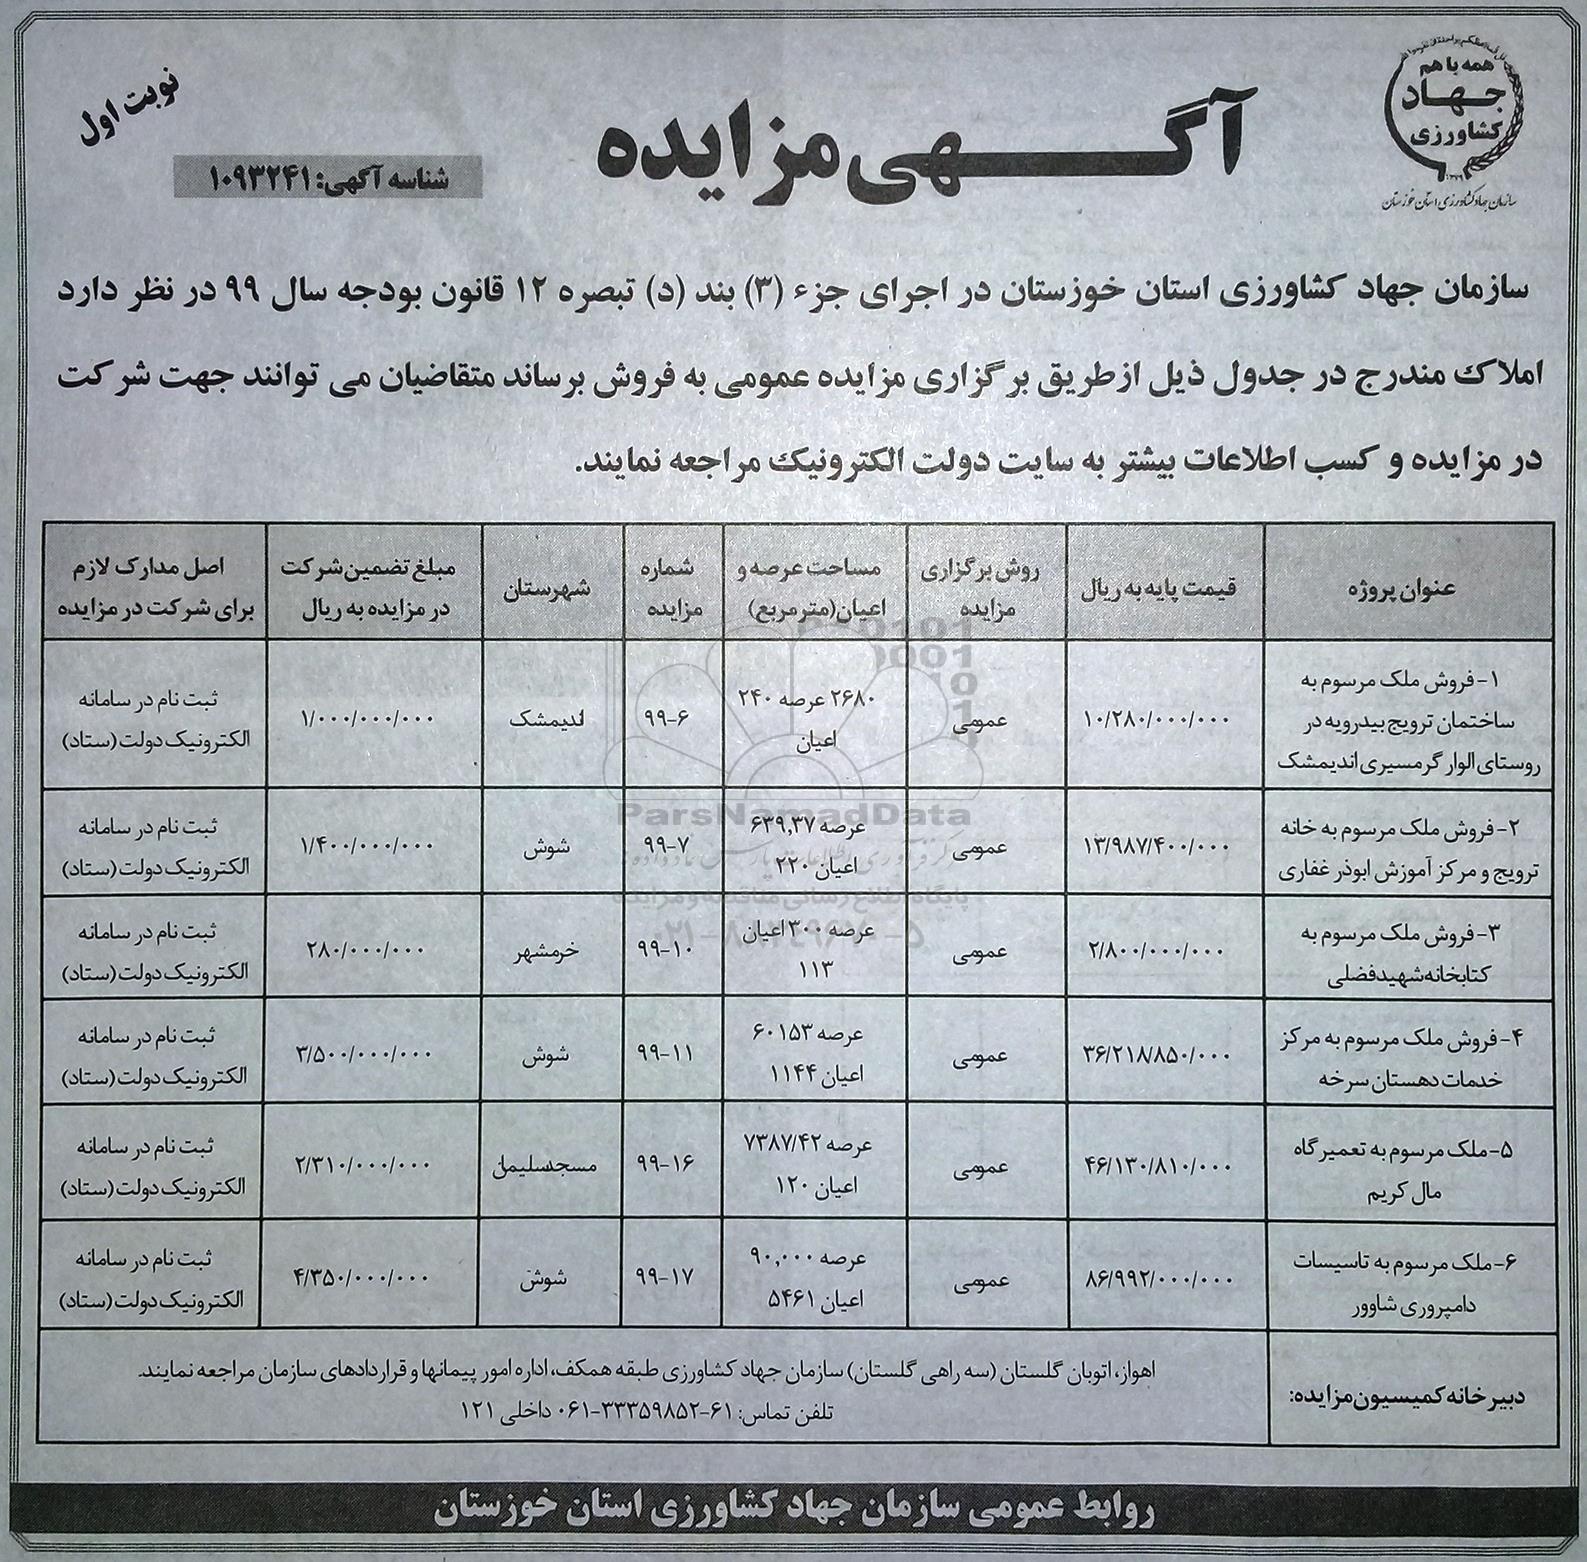 همه با هم
جهاد
کشاورزی
سازمان جهاد کشاورزی استان خوزستان
آگهی مزایده
نوبت اول
شناسه آگهی: ۱۰۹۳۲۴۱
سازمان جهاد کشاورزی استان خوزستان در اجرای جزء (۳) بند (د) تبصره ۱۲ قانون بودجه سال ۹۹ در نظر دارد
املاک مندرج در جدول ذیل ازطریق برگزاری مزایده عمومی به فروش برساند متقاضیان می توانند جهت شرکت
در مزایده و کسب اطلاعات بیشتر به سایت دولت الکترونیک مراجعه نمایند.
عنوان پروژه
قیمت پایه به ریال
روش برگزاری
مزایده
مساحت عرصه و
اعیان(مترمربع)
شماره
مزایده
شهرستان
مبلغ تضمین شرکت
در مزایده به ریال
اصل مدارک لازم
برای شرکت در مزایده
۱- فروش ملک مرسوم به
ساختمان ترویج بیدرویه در
روستای الوار گرمسیری اندیمشک
۱۰/۲۸۰/۰۰۰/۰۰۰
عمومی
۲۶۸۰ عرصه ۲۴۰
اعیان
۹۹-۶
اندیمشک
۱/۰۰۰/۰۰۰/۰۰۰
ثبت نام در سامانه
الکترونیک دولت (ستاد)
۲- فروش ملک مرسوم به خانه
ترویج و مرکز آموزش ابوذر غفاری
۱۳/۹۸۷/۴۰۰/۰۰۰
عمومی
عرصه ۶۳۹,۳۷
اعیان ۲۲۰
۹۹-۷
شوش
۱/۴۰۰/۰۰۰/۰۰۰
ثبت نام در سامانه
الکترونیک دولت (ستاد)
۳- فروش ملک مرسوم به
کتابخانه شهید فضلی
۲/۸۰۰/۰۰۰/۰۰۰
عمومی
عرصه ۳۰۰ اعیان
۱۱۳
۹۹-۱۰
خرمشهر
۲۸۰/۰۰۰/۰۰۰
ثبت نام در سامانه
الکترونیک دولت (ستاد)
۴- فروش ملک مرسوم به مرکز
خدمات دهستان سرخه
۳۶/۲۱۸/۸۵۰/۰۰۰
عمومی
عرصه ۶۰۱۵۳
اعیان ۱۱۴۴
۹۹-۱۱
شوش
۳/۵۰۰/۰۰۰/۰۰۰
ثبت نام در سامانه
الکترونیک دولت (ستاد)
۵- ملک مرسوم به تعمیرگاه
مال کریم
۴۶/۱۳۰/۸۱۰/۰۰۰
عمومی
عرصه ۷۳۸۷/۴۲
اعیان ۱۲۰
۹۹-۱۶
مسجدسلیمان
۲/۳۱۰/۰۰۰/۰۰۰
ثبت نام در سامانه
الکترونیک دولت (ستاد)
۶- ملک مرسوم به تاسیسات
دامپروری شاوور
۸۶/۹۹۲/۰۰۰/۰۰۰
عمومی
عرصه ۹۰,۰۰۰
اعیان ۵۴۶۱
۹۹-۱۷
شوش
۴/۳۵۰/۰۰۰/۰۰۰
ثبت نام در سامانه
الکترونیک دولت (ستاد)
دبیرخانه کمیسیون مزایده:
اهواز، اتوبان گلستان (سه راهی گلستان) سازمان جهاد کشاورزی طبقه همکف، اداره امور پیمانها و قراردادهای سازمان مراجعه نمایند.
تلفن تماس: ۶۱-۳۳۳۵۹۸۵۲-۰۶۱ داخلی ۱۲۱
روابط عمومی سازمان جهاد کشاورزی استان خوزستان
ParsNamadData
پایگاه اطلاع رسانی مناقصه و مزایده